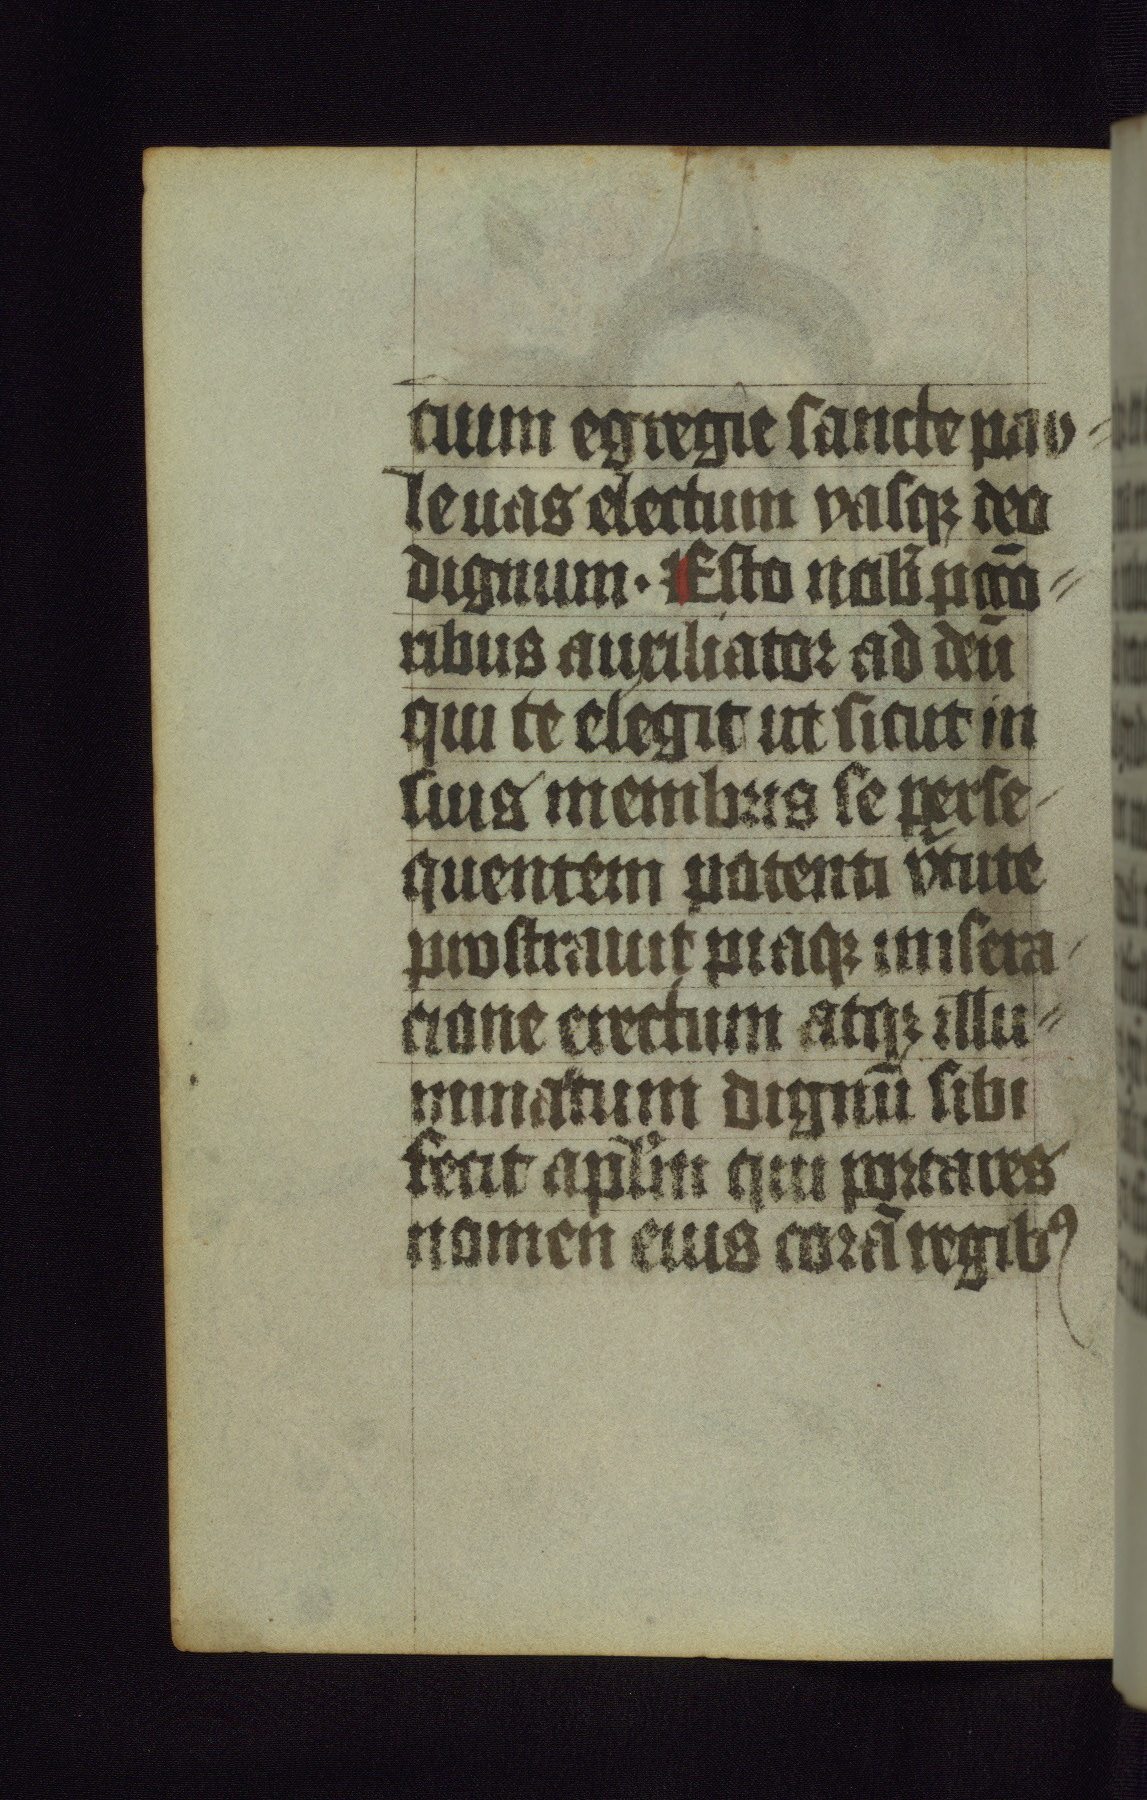 cium egregie sancte pau〃
le uas electum vasqꝫ deo
dignum · Esto nob̄ pccō〃
ribus auxiliator ad deū
qui te elegit ut sicut in
suis membris se perse⸗
quentem potenti v̄tute
prostrauit piaqꝫ misera⸗
cione erectum atqꝫ illu〃
minatum dignū sibi
fecit aplm̄ qui portares
nomen eius corā regibꝰ